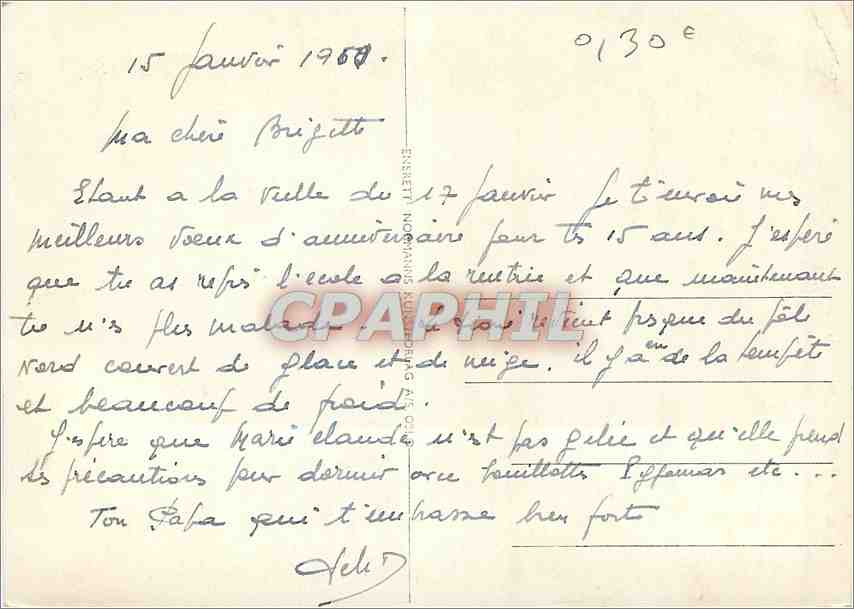 15 Janvier 1961.
0,30 €
Ma chère Brigitte
Etant a la veille du 17 Janvier Je t'envoie mes
meilleurs voeux d'anniversaire pour tes 15 ans. J'espère
que tu as repris l'école a la rentrée et que maintenant
tu n'es plus malade. revient presque du pôle
Nord couvert de glace et de neige. il y a eu de la tempête
et beaucoup de froid.
J'espère que Marie claude n'est pas gelée et qu'elle prend
ses précautions pour dormir avec bouillottes Pyjamas etc....
Ton Papa qui t'embrasse bien fort
ENERETT NORMANNS KUNSTFORLAG A/S OSLO
CPAPHIL